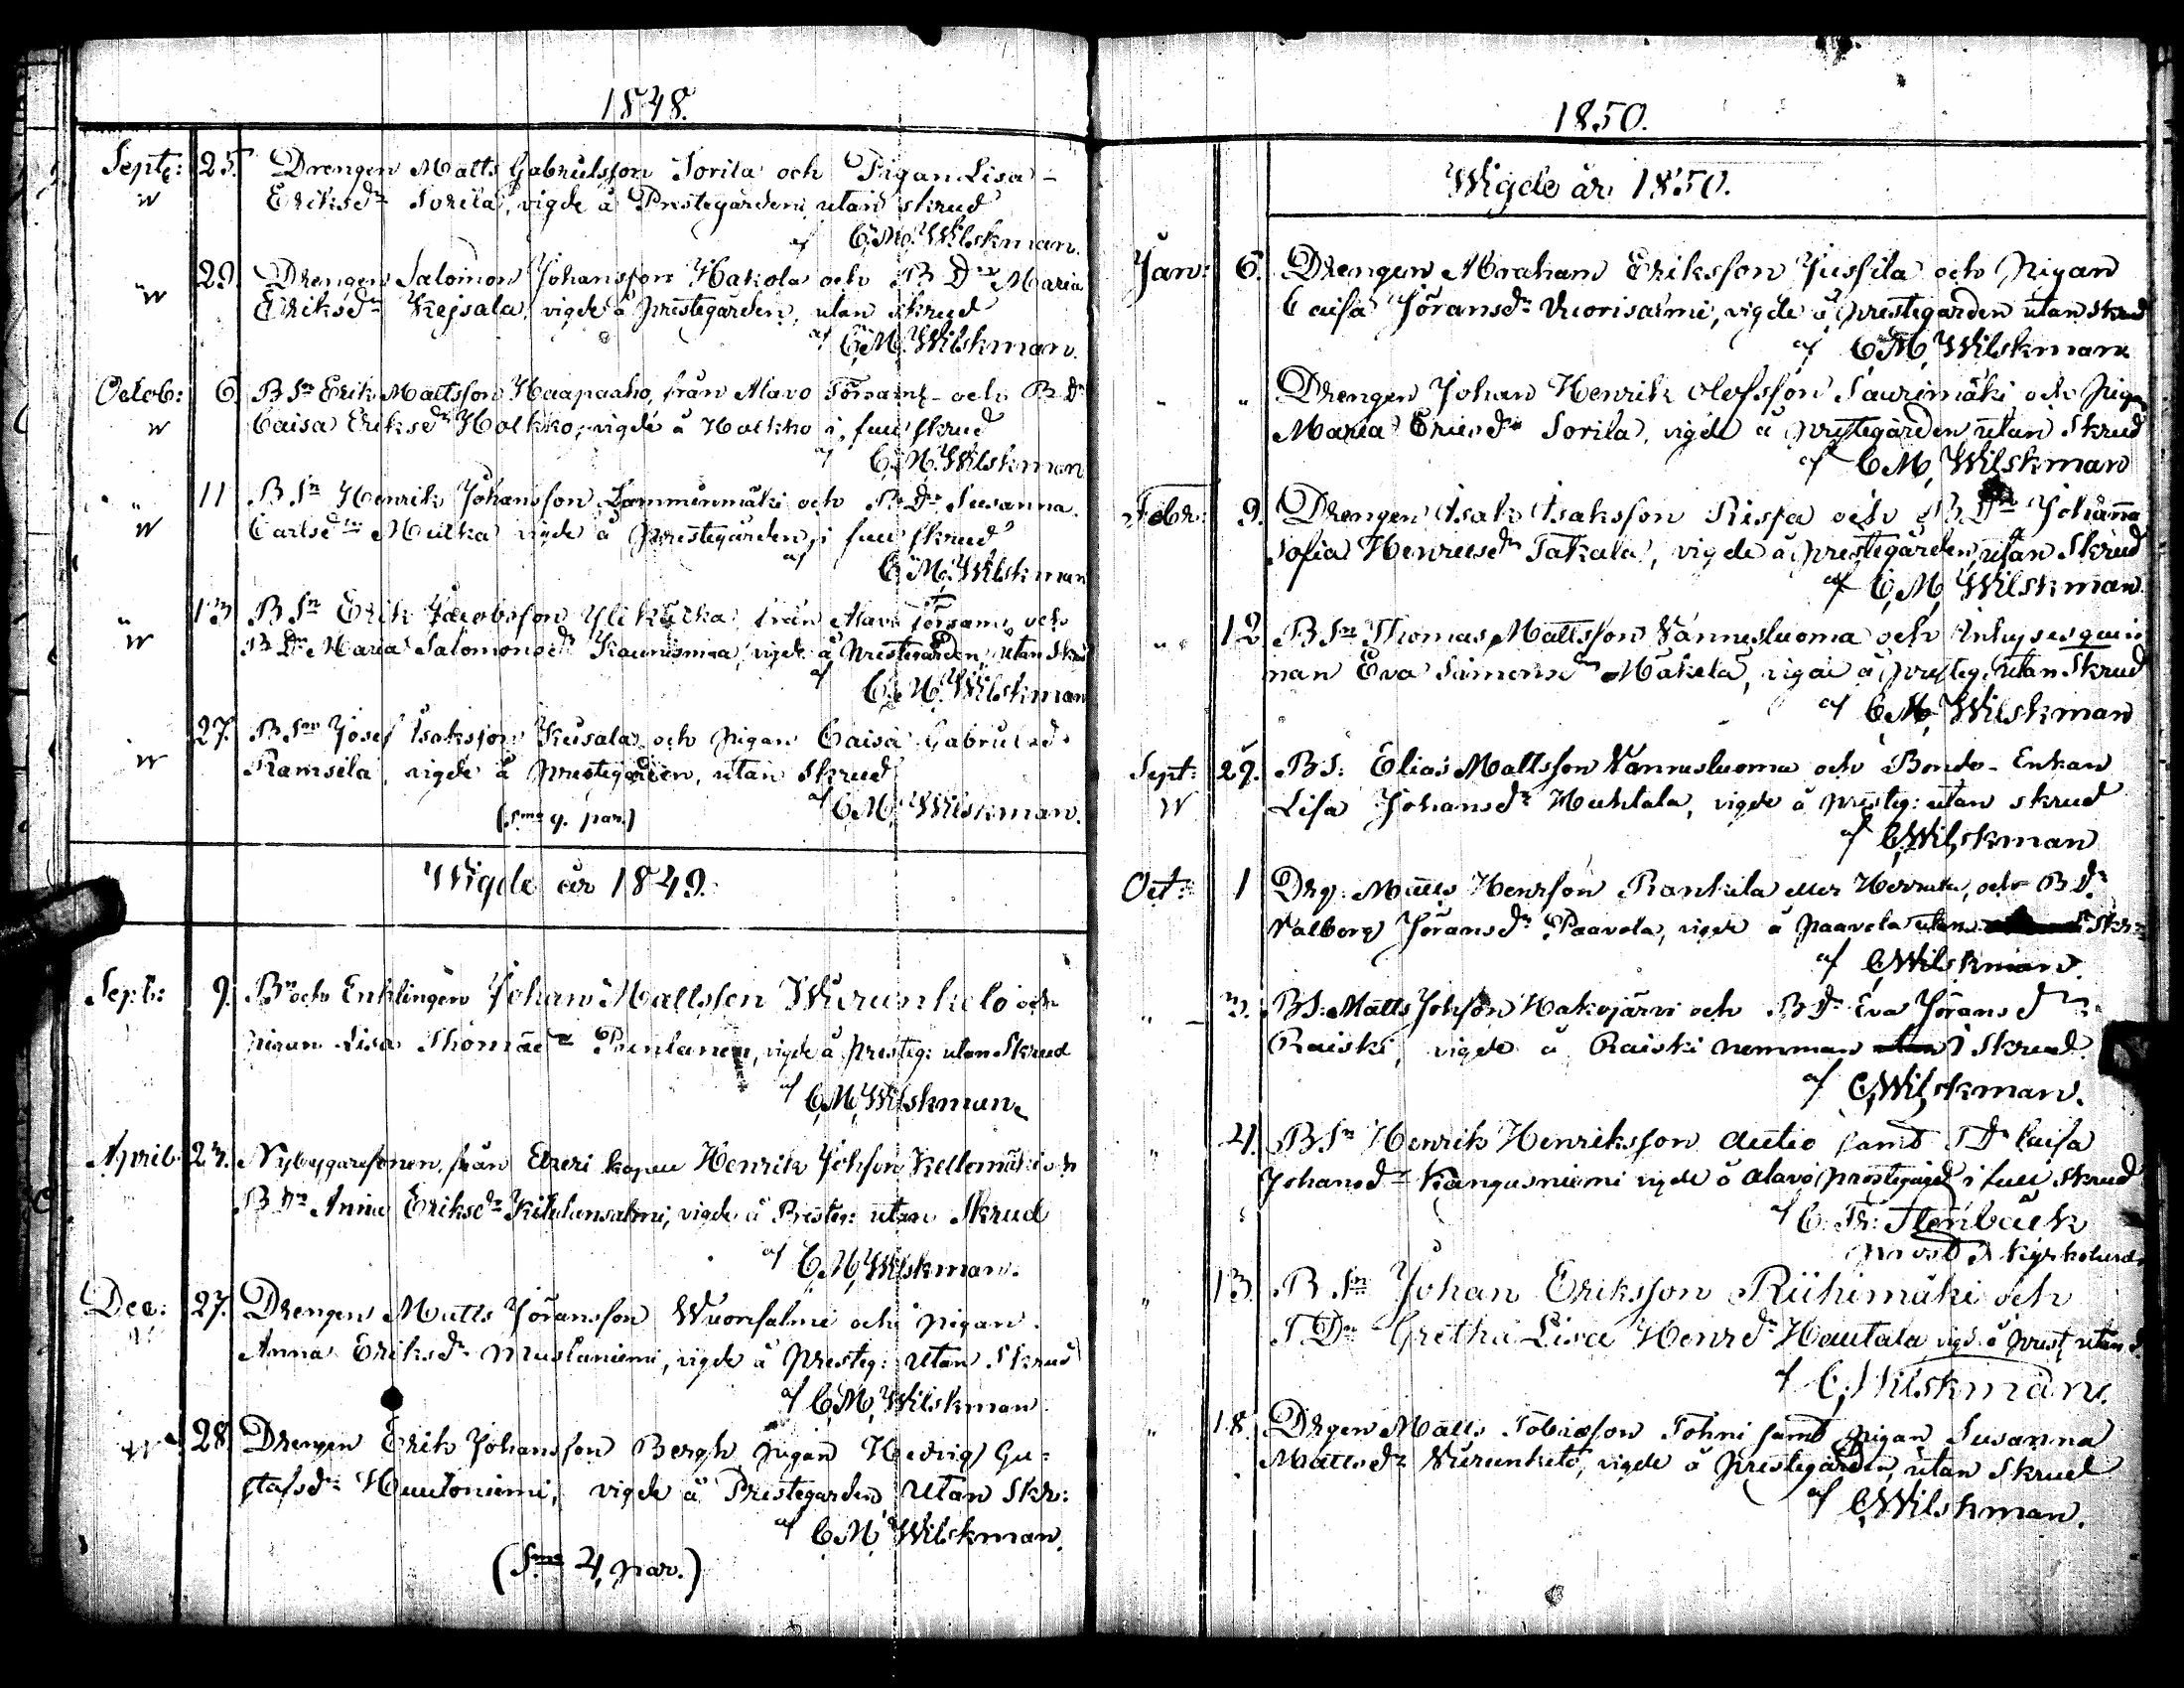 1848.
Septe: 25. Drengen Matts Gabrielsson Sorila och Pigan Lisa
w Eriksdr Sorila, vigde å Prestegården utan skrud
af C. M. Wilskman.
29. Drengen Salomon Johansson Hakola och B Dr Maria
w Eriksdr Kejsala, vigde å prestegården, utan skrud
af C. M. Wilskman.
Octob: 6. B Sn Erik Mattsson Haapaaho, från Alavo Församl och B Dr
w Caisa Eriksdr Holkko, vigde å Holkko i full skrud
af C. M. Wilskman
" 11 B Sn Henrik Johansson Lamminmäki och B Dr Susanna
w Carlsdr Mulka vigde å prestegården i full skrud
af C. M. Wilskman
" 13 B Sn Erik Jacobsson från Alavo församl och
w B Dr Maria Salomonsdr Kaunismaa, vigde å Prestegården, utan Skrud
af C. M. Wilskman
27. B Sn Josef Isaksson Kusala och pigan Caisa Gabrielsd
w Ramsila, vigde å prestegården, utan skrud
af C. M. Wilskman.
(Sma 9. par.)
Wigde år 1849.
Sept: 9. Bn och Enklingen Johan Mattsson Wuorunkelo och
pigan Lisa Thomasdr Penlanen, vigde å presteg: utan Skrud
af C, M, Wilskman
April 23. Nybyggaresonen, från Etseri kapell Henrik Johsson Kellomäki och
B Dr Anna Eriksdr Kihlansalmi, vigde å Presteg: utan Skrud
af C, M, Wilskman.
Dec: 27. Drengen Matts Jöransson Wuorisalmi och pigan
w Anna Eriksdr Mustaniemi, vigde å Presteg: utan Skrud
af C, M, Wilskman
w 28. Drengen Erik Johansson Bergh pigan Hedvig Gu=
stafsdr Hautoniemi, vigde å Prestegården utan Skr:
af C, M, Wilskman.
(Sma 4, par.)
1850.
Wigde år 1850.
Jan: 6. Drengen Abraham Eriksson Jussila och pigan
Caisa Jöransdr Vuorisalmi, vigde å prestegården utan skrud
af C, M, Wilskman
" " Drengen Johan Henrik Olofsson Saurimäki och piga
Maria Ericsdr Sorila, vigde å prestegården, utan Skrud
af C, M, Wilskman
Febr: 9. Drengen Isak Isaksson Rispa och B. Dr Johanna
Sofia Henricsdr Takala, vigde å prestegården, utan Skrud
af C, M, Wilskman
" 12 B Sn Thomas Mattsson Vännesluoma och Inhysesquin
nan Eva Simonsdr Mäkelä, vigde å presteg, utan Skrud
af C, M, Wilskman
Sept: 29. B S: Elias Mattsson Vännesluoma och Bonde-Enkan
w Lisa Johansdr Huhtala, vigde å presteg: utan skrud
af C, Wilskman
Oct: 1 Drg: Matts Henrsson Rankila eller Herrala, och B Dr
Valborg Jöransdr Paavola, vigde å Paavola utan Skr:
af C, Wilskman.
" 3. B S: Matts Johsson Hakojärvi och B Dr Eva Jöransdr
Raiski, vigde å Raiski hemman i Skrud.
af C, Wilskman.
" 4. B Sn Henrik Henriksson Autio samt S Dr Caisa
Johansdr Kangasniemi vigde å Alavo prestegård i full Skrud
af C. Fr: Stenbäck
Provst & Kyrkoherde
" 13. B Sn Johan Eriksson Riihimäki och
S Dr Gretha Lisa Henrdr Hautala vigd. å prest, utan S
af C, Wilskman.
" 18. Drgen Matts Tobiasson Tohni samt pigan Susanna
Mattsdr Vurunkelo, vigde å prestegården, utan Skrud
af C, Wilskman.